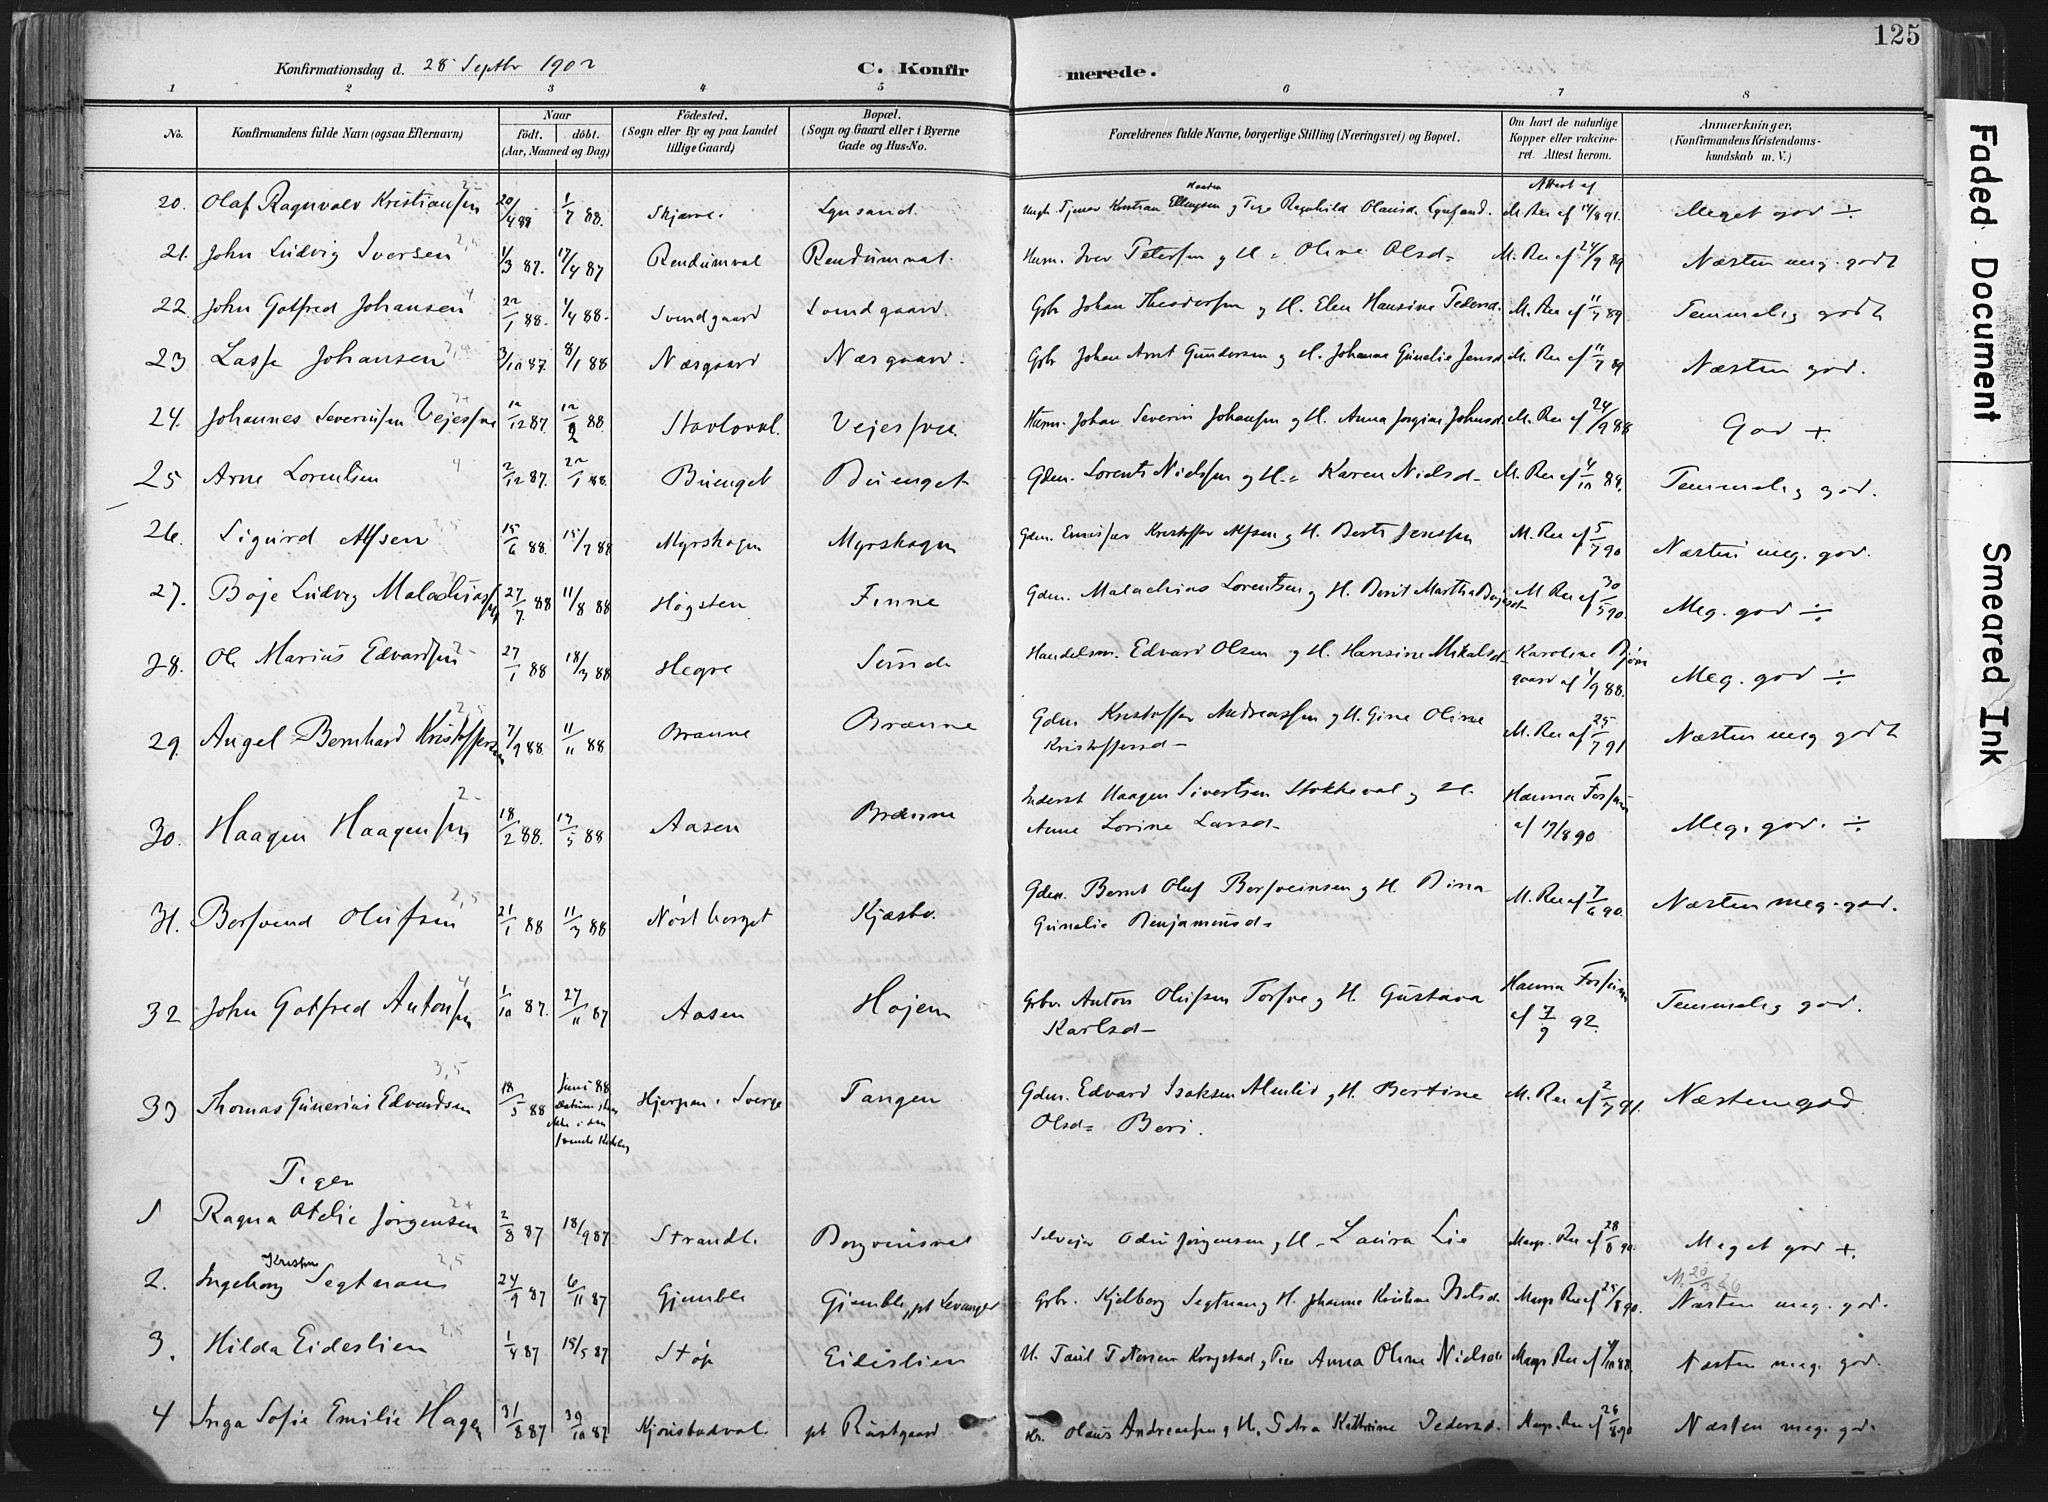 125
Konfirmationsdag d. 28 Septbr 1902 C. Konfirmerede.
1 2 3 4 5 6 7 8
No. Konfirmandens fulde Navn (ogsaa Efternavn) Naar født. døbt. (Aar, Maaned og Dag) Fødested. (Sogn eller By og paa Landet tillige Gaard) Bopæl. (Sogn og Gaard eller i Byerne Gade og Hus-No. Forældrenes fulde Navne, borgerlige Stilling (Næringsvei) og Bopæl. Om havt de naturlige Kopper eller vakcineret. Attest herom. Anmærkninger, (Konfirmandens Kristendomskundskab m. V.)
20. Olaf Ragnvald Kristiansen 20/4 88 1/7 88. Skjerve. Lynsand. Ungk. Tjener Kristian Ellingsen og Pige Ragnhild Olausd. Lynsand. Attest af M. Ree af 14/8 91. Meget god ÷
21. John Ludvig Iversen 2,5 1/3 87. 17/4 87 Rendumval Rendumval. Husm. Iver Petersen og H. Oline Olsd. M. Ree af 24/9 89 Næsten meg. godt
22 John Gotfred Johansen 4 22/1 88. 4/4 88. Svendgaard Svendgaard. Gbr Johan Theodorsen og H. Elen Hansine Pedersd. M. Ree af 11/7 89 Temmelig godt
23 Lasse Johansen 3,4 3/10 87. 8/1 88 Næsgaard Næsgaard. Gbr Johan Arnt Gundersen og H. Johanna Gunelie Jensd. M. Ree af 11/7 89 Næsten god.
24. Johannes Severinsen Vejessve 12/12 87. 12/2 88. Stavloval. Vejessve. Husm. Johan Severin Johansen og H. Anna Jørgine Johnsd. M. Ree af 24/9 88 God +
25 Arne Lorentsen 4 2/12 87. 22/1 88. Buenget Buenget Gdm. Lorents Nielsen og H. Karen Nielsd. M. Ree af 4/10 89. Temmelig god.
26. Sigurd Alfsen 2,5 15/6 88. 15/7 88 Myrskogen Myrskogen Gdm. Kristoffer Alfsen og H. Berit Jensen M. Ree af 5/7 90 Næsten meg. god.
27. Boje Ludvig Malachiassen 27/7. 88 11/8 88 Høgsten Finne Gdm. Malachias Lorentsen og H. Berit Martha Bojesd. M. Ree af 30/5 90. Meg. god ÷
28. Ole Marius Edvardsen 2- 27/1 88 18/3 88 Hegre Sunde Handelsm. Edvard Olsen og H. Hansine Mikalsd. Karoline Bjørngaard af 1/9 88. Meg. god ÷
29. Angel Bernhard Kristoffersen 2,5 7/9 88. 11/11 88 Brænne Brænne Gdm. Kristoffer Andreassen og H. Gine Oline Kristoffersd. M. Ree af 25/7 91 Næsten meg godt
30. Haagen Haagensen 2- 18/2 88. 13/5 88 Aasen Brænne Inderst Haagen Sivertsen Stokkeval og H. Anne Lorine Larsd. Hanna Forsum af 19/8 90 Meg. god. ÷
31. Borsvend Olufsen 2,5 21/1 88 11/3 88 Nøstberget Kjæsbo. Gdm. Bernt Oluf Borsveinsen og H. Dina Gunelie Benjaminsd. M. Ree af 7/6 90. Næsten meg. god.
32 John Gotfred Antonsen 4 1/10 87. 27/11 87 Aasen Hojem Gbr. Anton Olufsen Torsve og H. Gustava Karlsd. Hanna Forsum af 7/9 92. Temmelig god.
33 Thomas Gunerius Edvardsen 3,5 18/5 88 Juni 88 Datum staar ikke i den svenske Kirkebog Hjerpen i Sverge Tangen Gdm. Edvard Isaksen Almlid og H. Bertine Olsd. Beri. M. Ree af 2/7 91. Næsten god
Piger
1 Ragna Otelie Jørgensen 2+ 2/8 87 18/9 87 Strandh. Borgvinsvet Selvejer Odin Jørgensen og H. Laura Lie Marg. Ree af 28/8 90. Meget god +.
2. Ingeborg Kristine Segtnan 2,5 24/9 87 6/11 87 Gjemble Gjemble, pt Levanger Gbr. Kjelberg Segtnan og H. Johanna Kristine Nelsd. Marg. Ree af 25/8 90. Næsten meg. god.
3. Hilda Eideslien 2,5 1/4 87 15/5 87 Støp Eideslien U. Paul Petersen Krogstad og Pige Anna Oline Nielsd. Marg. Ree af 4/10 88. Næsten meg. god
4 Inga Sofie Emilie Hagen 31/8 87 30/10 87 Kjønstadval. pt Rostgaard Olaus Andreassen og H. Petra Kathrine Pedersd. Marg. Ree af 26/8 90 Næsten meg. god.
Faded Document
Smeared Ink